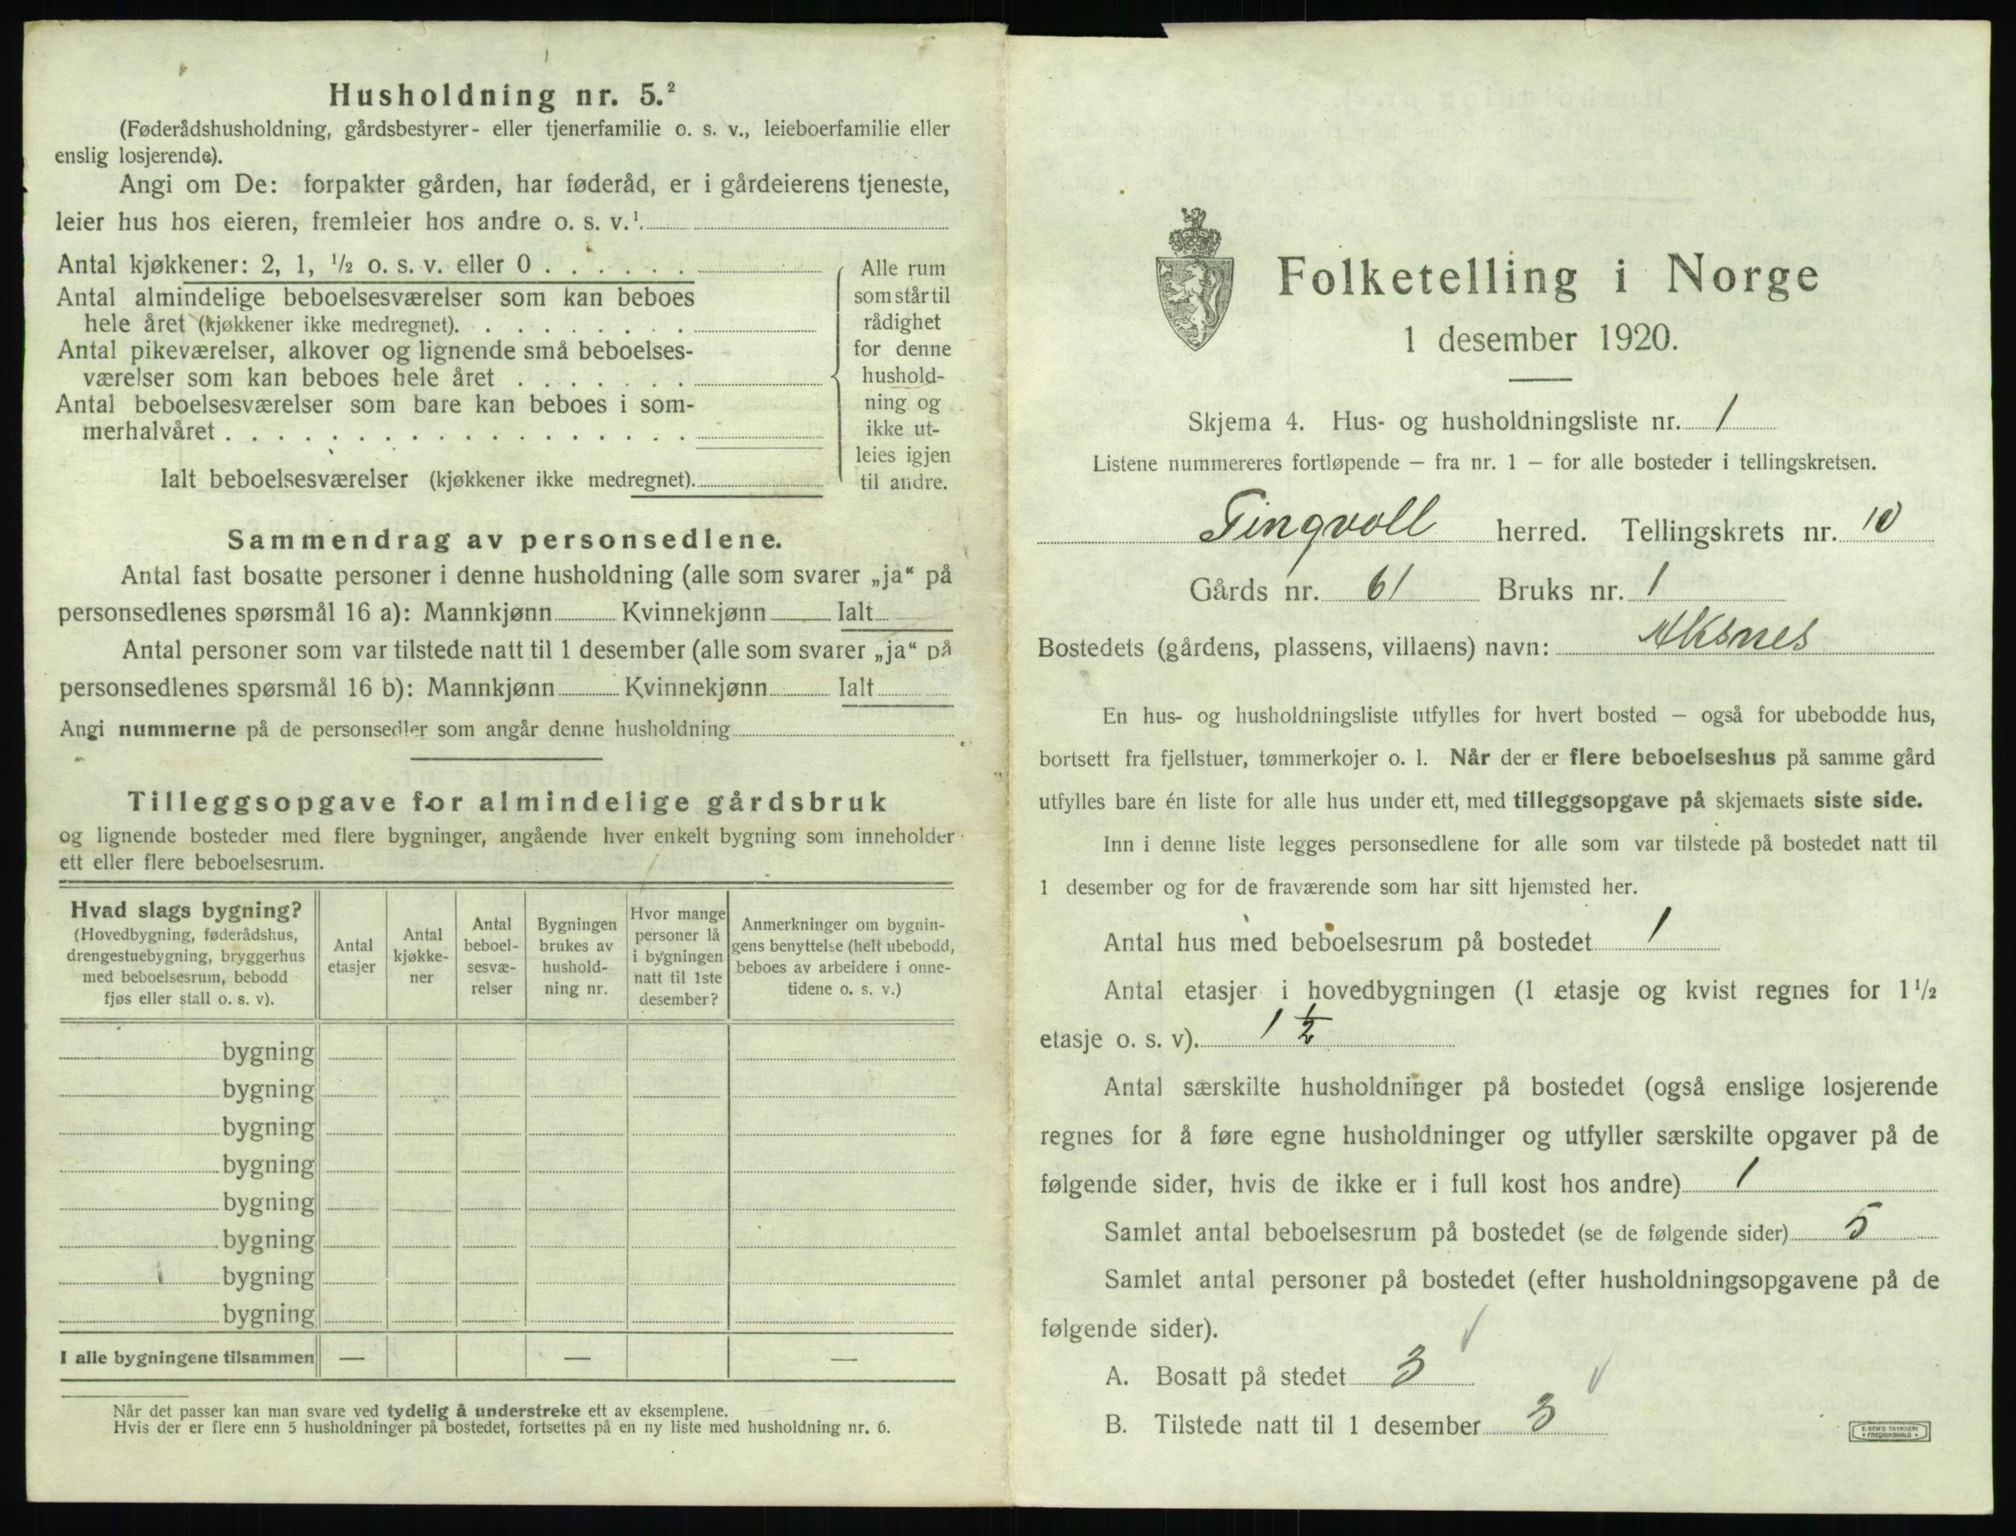 Husholdning nr. 5.²
(Føderådshusholdning, gårdsbestyrer- eller tjenerfamilie o. s. v., leieboerfamilie eller
enslig losjerende).
Angi om De: forpakter gården, har føderåd, er i gårdeierens tjeneste,
leier hus hos eieren, fremleier hos andre o. s. v.¹
Antal kjøkkener: 2, 1, ½ o. s. v. eller 0 . . . . . .
Antal almindelige beboelsesværelser som kan beboes
hele året (kjøkkener ikke medregnet). . . . . . . . . .
Antal pikeværelser, alkover og lignende små beboelses-
værelser som kan beboes hele året . . . . . . .
Antal beboelsesværelser som bare kan beboes i som-
merhalvåret . . . . . . . . . . . . . . . . . .
Ialt beboelsesværelser (kjøkkener ikke medregnet).
Alle rum
som står til
rådighet
for denne
hushold-
ning og
ikke ut-
leies igjen
til andre.
Sammendrag av personsedlene.
Antal fast bosatte personer i denne husholdning (alle som svarer „ja“ på
personsedlenes spørsmål 16 a): Mannkjønn Kvinnekjønn Ialt
Antal personer som var tilstede natt til 1 desember (alle som svarer „ja“ på
personsedlenes spørsmål 16 b): Mannkjønn Kvinnekjønn Ialt
Angi nummerne på de personsedler som angår denne husholdning
Tilleggsopgave for almindelige gårdsbruk
og lignende bosteder med flere bygninger, angående hver enkelt bygning som inneholder
ett eller flere beboelsesrum.
Hvad slags bygning?
(Hovedbygning, føderådshus,
drengestuebygning, bryggerhus
med beboelsesrum, bebodd
fjøs eller stall o. s. v).
Antal
etasjer
Antal
kjøkke-
ner
Antal
beboel-
sesvæ-
relser
Bygningen
brukes av
hushold-
ning nr.
Hvor mange
personer lå
i bygningen
natt til 1ste
desember?
Anmerkninger om bygnin-
gens benyttelse (helt ubebodd,
beboes av arbeidere i onne-
tidene o. s. v.)
bygning
bygning
bygning
bygning
bygning
bygning
bygning
bygning
I alle bygningene tilsammen — — —
Når det passer kan man svare ved tydelig å understreke ett av eksemplene.
Hvis der er flere enn 5 husholdninger på bostedet, fortsettes på en ny liste med husholdning nr. 6.
Folketelling i Norge
1 desember 1920.
Skjema 4. Hus- og husholdningsliste nr. 1
Listene nummereres fortløpende – fra nr. 1 – for alle bosteder i tellingskretsen.
Tingvoll herred. Tellingskrets nr. 10
Gårds nr. 61 Bruks nr. 1
Bostedets (gårdens, plassens, villaens) navn: Aksnes
En hus- og husholdningsliste utfylles for hvert bosted – også for ubebodde hus,
bortsett fra fjellstuer, tømmerkojer o. l. Når der er flere beboelseshus på samme gård
utfylles bare én liste for alle hus under ett, med tilleggsopgave på skjemaets siste side.
Inn i denne liste legges personsedlene for alle som var tilstede på bostedet natt til
1 desember og for de fraværende som har sitt hjemsted her.
Antal hus med beboelsesrum på bostedet 1
Antal etasjer i hovedbygningen (1 etasje og kvist regnes for 1½
etasje o. s. v). 1 ½
Antal særskilte husholdninger på bostedet (også enslige losjerende
regnes for å føre egne husholdninger og utfyller særskilte opgaver på de
følgende sider, hvis de ikke er i full kost hos andre) 1
Samlet antal beboelsesrum på bostedet (se de følgende sider) 5
Samlet antal personer på bostedet (efter husholdningsopgavene på de
følgende sider).
A. Bosatt på stedet 3
B. Tilstede natt til 1 desember 3